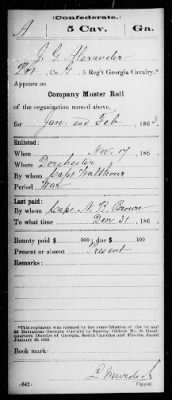 (Confederate.)
A 5 Cav. Ga.
J. G. Alexander
Pvt, Co. , 5 Reg't Georgia Cavalry.*
Appears on
Company Muster Roll
of the organization named above,
for Jan and Feb, 186 .
Enlisted:
When Nov. 17, 186 .
Where Dorchester
By whom Capt Walthour
Period War
Last paid:
By whom Capt. N. B. Brown
To what time Dec 31, 186 .
Bounty paid $ 100; due $ 100
Present or absent Present
Remarks:
*This regiment was formed by the consolidation of the 1st and 2d Battalions Georgia Cavalry by Special Orders No. , Headquarters District of Georgia, South Carolina and Florida, dated January 20, 1863.
Book mark:
(642)
Copyist.